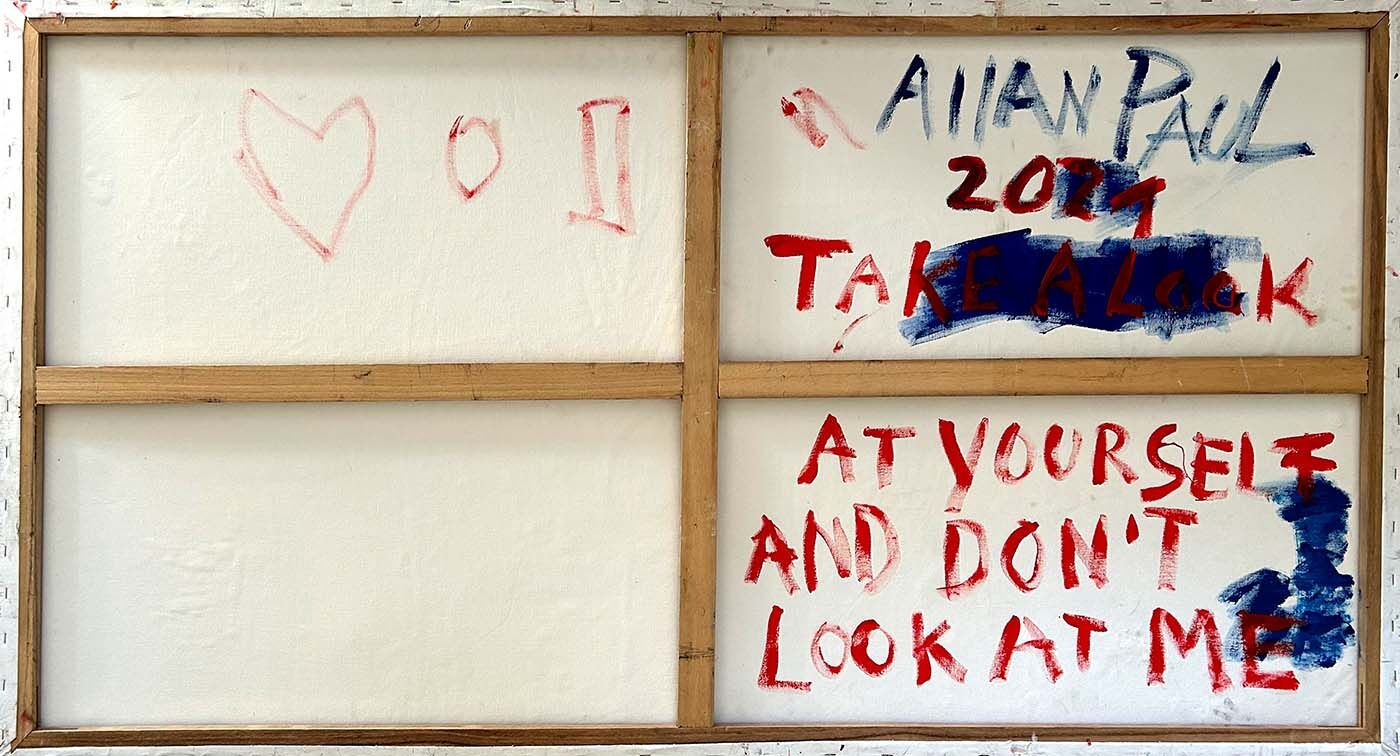 AllAN PAUL
2021
TAKE A LOOK
AT YOURSELF
AND DON'T
LOOK AT ME